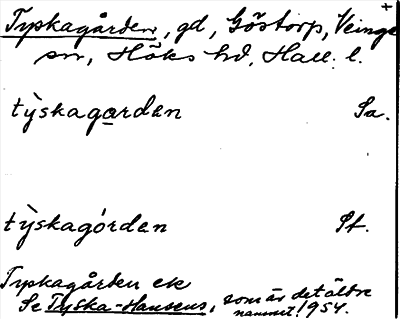 Tyskagården, gd, Göstorp, Veinge +
sn, Höks hd, Hall. l.
tỳskagarden Sa.
tỳskagórden St.
Tyskagården ek
Se Tyska-Hansens, som är det äldre
namnet! 1954.